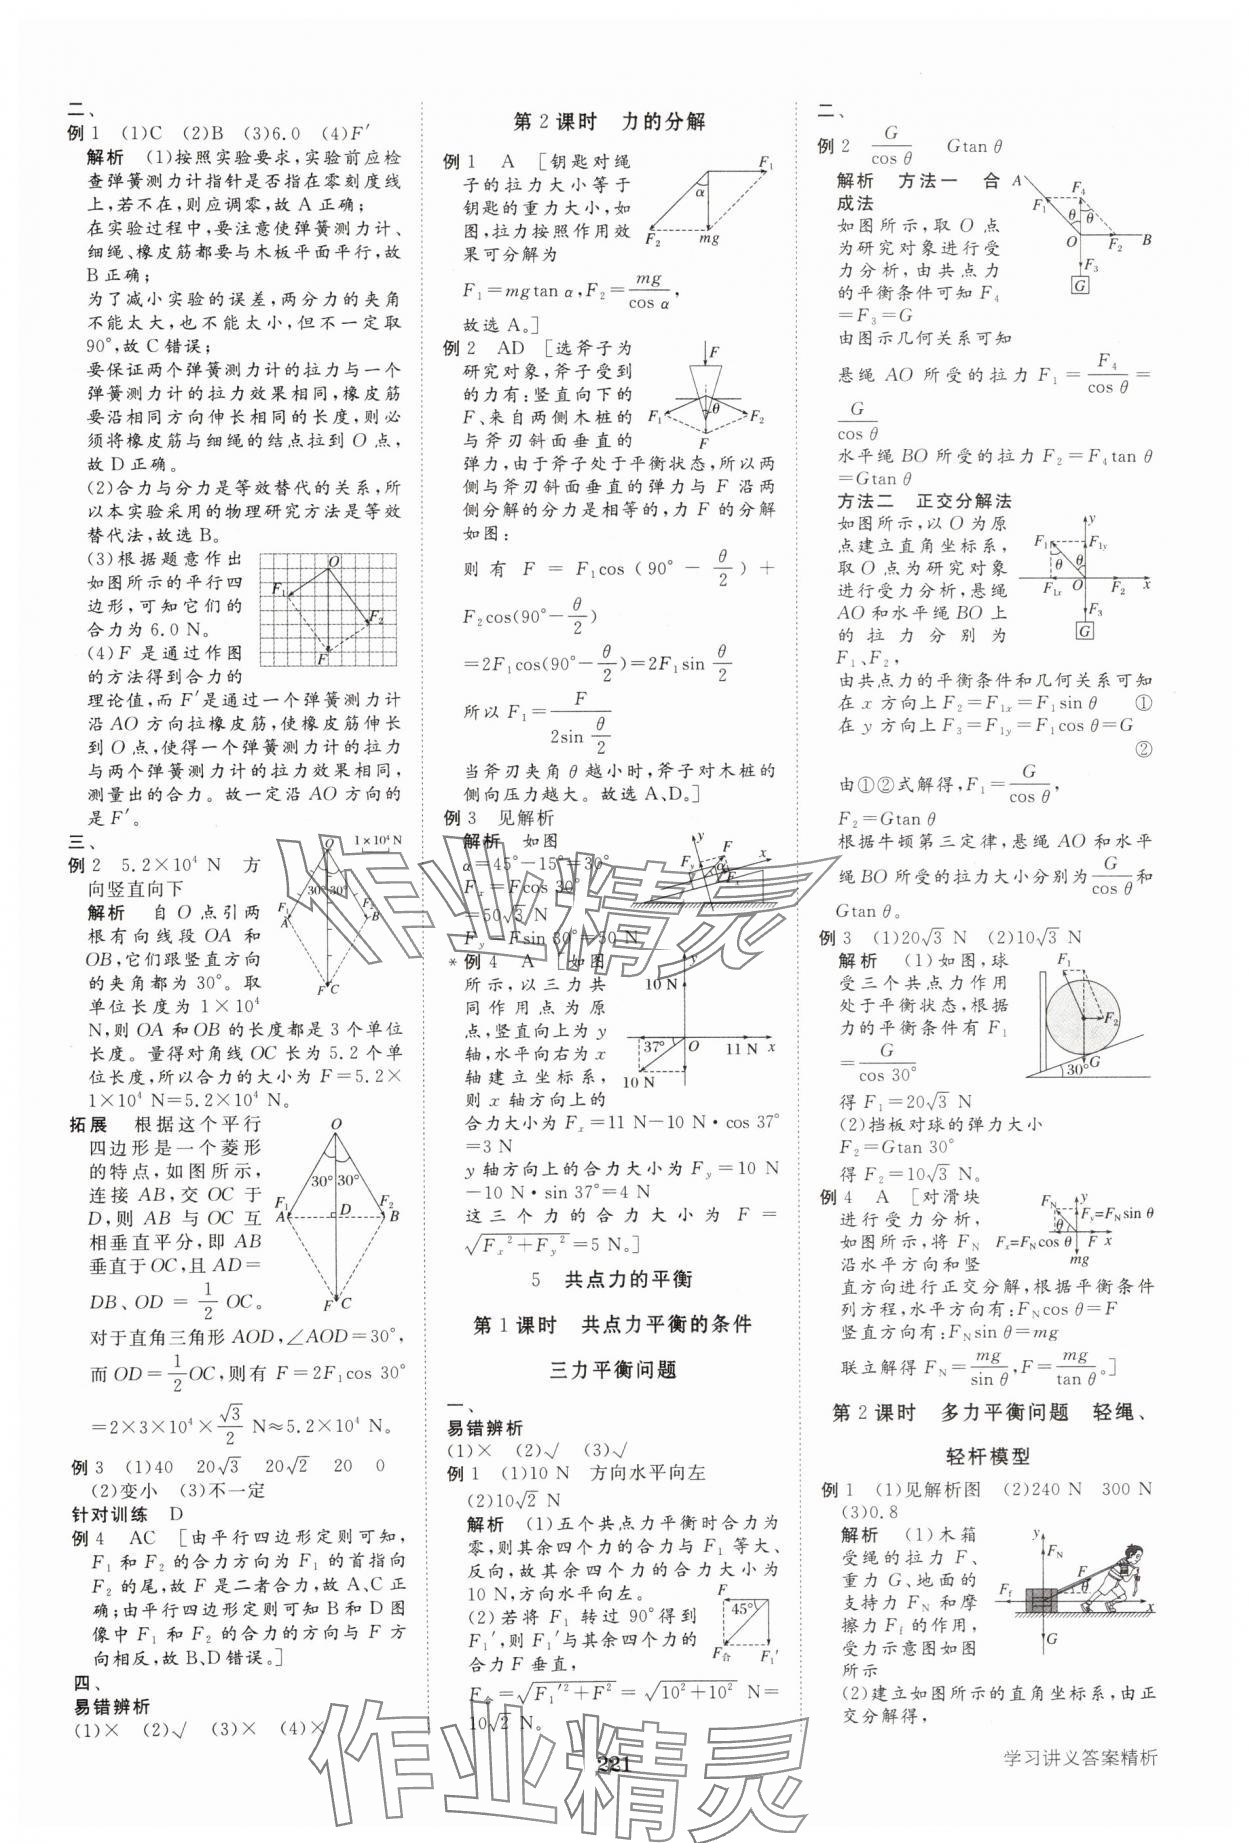 二、
例1　(1)C　(2)B　(3)6.0　(4)F′
解析　(1)按照实验要求,实验前应检
查弹簧测力计指针是否指在零刻度线
上,若不在,则应调零,故A正确;
在实验过程中,要注意使弹簧测力计、
细绳、橡皮筋都要与木板平面平行,故
B正确;
为了减小实验的误差,两分力的夹角
不能太大,也不能太小,但不一定取
90°,故C错误;
要保证两个弹簧测力计的拉力与一个
弹簧测力计的拉力效果相同,橡皮筋
要沿相同方向伸长相同的长度,则必
须将橡皮筋与细绳的结点拉到O点,
故D正确。
(2)合力与分力是等效替代的关系,所
以本实验采用的物理研究方法是等效
替代法,故选B。
(3)根据题意作出
如图所示的平行四
边形,可知它们的
合力为6.0 N。
O
F₁
F₂
F
(4)F是通过作图
的方法得到合力的
理论值,而F′是通过一个弹簧测力计
沿AO方向拉橡皮筋,使橡皮筋伸长
到O点,使得一个弹簧测力计的拉力
与两个弹簧测力计的拉力效果相同,
测量出的合力。故一定沿AO方向的
是F′。
三、
例2　5.2×10⁴ N　方
向竖直向下
O　1×10⁴ N
30°30°
F₁　F₂
A　B
F C
解析　自O点引两
根有向线段OA和
OB,它们跟竖直方向
的夹角都为30°。取
单位长度为1×10⁴
N,则OA和OB的长度都是3个单位
长度。量得对角线OC长为5.2个单
位长度,所以合力的大小为F=5.2×
1×10⁴ N=5.2×10⁴ N。
拓展　根据这个平行
四边形是一个菱形
的特点,如图所示,
连接AB,交OC于
D,则AB与OC互
相垂直平分,即AB
垂直于OC,且AD=
DB、OD=1/2 OC。
O
30° 30°
F₁　F₂
A　D　B
F C
对于直角三角形AOD,∠AOD=30°,
而OD=1/2 OC,则有F=2F₁cos 30°
=2×3×10⁴×√3/2 N≈5.2×10⁴ N。
例3　(1)40　20√3　20√2　20　0
(2)变小　(3)不一定
针对训练　D
例4　AC　[由平行四边形定则可知,
F₁和F₂的合力方向为F₁的首指向
F₂的尾,故F是二者合力,故A、C正
确;由平行四边形定则可知B和D图
像中F₁和F₂的合力的方向与F方
向相反,故B、D错误。]
四、
易错辨析
(1)×　(2)√　(3)×　(4)×
第2课时　力的分解
例1　A　[钥匙对绳
子的拉力大小等于
钥匙的重力大小,如
图,拉力按照作用效
果可分解为
F₁
α
F₂　mg
F₁=mgtan α,F₂=mg/cos α,
故选A。]
例2　AD　[选斧子为
研究对象,斧子受到
的力有:竖直向下的
F、来自两侧木桩的
与斧刃斜面垂直的
F
F₁　θ　F₂
F
弹力,由于斧子处于平衡状态,所以两
侧与斧刃斜面垂直的弹力与F沿两
侧分解的分力是相等的,力F的分解
如图:
则有F=F₁cos(90°-θ/2)+
F₂cos(90°-θ/2)
=2F₁cos(90°-θ/2)=2F₁sin θ/2
所以F₁=F/(2sin θ/2)
当斧刃夹角θ越小时,斧子对木桩的
侧向压力越大。故选A、D。]
例3　见解析
解析　如图
α=45°-15°=30°
Fₓ=Fcos 30°
=50√3 N
F_y=Fsin 30°=50 N
y　F　x
F_y　α　Fₓ
*例4　A　[如图
所示,以三力共
同作用点为原
点,竖直向上为y
轴,水平向右为x
轴建立坐标系,
则x轴方向上的
y
10 N
37°　O　11 N　x
10 N
合力大小为Fₓ=11 N-10 N·cos 37°
=3 N
y轴方向上的合力大小为F_y=10 N
-10 N·sin 37°=4 N
这三个力的合力大小为F=
√(Fₓ²+F_y²)=5 N。]
5　共点力的平衡
第1课时　共点力平衡的条件
三力平衡问题
一、
易错辨析
(1)×　(2)√　(3)√
例1　(1)10 N　方向水平向左
(2)10√2 N
解析　(1)五个共点力平衡时合力为
零,则其余四个力的合力与F₁等大、
反向,故其余四个力的合力大小为
10 N,方向水平向左。
(2)若将F₁转过90°得到
F₁′,则F₁′与其余四个力的
合力F垂直,
F
45°
F合　F₁′
F合=√(F₁′²+F²)=√(10²+10²) N=
10√2 N。
二、
例2　G/cos θ　Gtan θ
解析　方法一　合
成法
如图所示,取O点
为研究对象进行受
力分析,由共点力
的平衡条件可知F₄
=F₃=G
A
F₁　F₄
θ θ
O　F₂　B
F₃
G
由图示几何关系可知
悬绳AO所受的拉力F₁=F₄/cos θ=
G/cos θ
水平绳BO所受的拉力F₂=F₄tan θ
=Gtan θ
方法二　正交分解法
如图所示,以O为原
点建立直角坐标系,
取O点为研究对象
进行受力分析,悬绳
AO和水平绳BO上
的拉力分别为
F₁、F₂,
y
F₁　F₁y
θ　θ
F₁ₓ　O　F₂　x
F₃
G
由共点力的平衡条件和几何关系可知
在x方向上F₂=F₁ₓ=F₁sin θ　①
在y方向上F₃=F₁y=F₁cos θ=G
②
由①②式解得,F₁=G/cos θ,
F₂=Gtan θ
根据牛顿第三定律,悬绳AO和水平
绳BO所受的拉力大小分别为G/cos θ和
Gtan θ。
例3　(1)20√3 N　(2)10√3 N
解析　(1)如图,球
受三个共点力作用
处于平衡状态,根据
力的平衡条件有F₁
=G/cos 30°
F₁
F₂
G
30°
得F₁=20√3 N
(2)挡板对球的弹力大小
F₂=Gtan 30°
得F₂=10√3 N。
例4　A　[对滑块
进行受力分析,
如图所示,将F_N
沿水平方向和竖
F_N　y　F_y=F_Nsin θ
θ
Fₓ=F_Ncos θ　F　x
mg
直方向进行正交分解,根据平衡条件
列方程,水平方向有:F_Ncos θ=F
竖直方向有:F_Nsin θ=mg
联立解得F_N=mg/sin θ,F=mg/tan θ。]
第2课时　多力平衡问题　轻绳、
轻杆模型
例1　(1)见解析图　(2)240 N　300 N
(3)0.8
解析　(1)木箱
受绳的拉力F、
重力G、地面的
支持力F_N和摩
擦力F_f的作用,
受力示意图如图
所示
y
F_N
F
F_f　θ
x
G
(2)建立如图所示的直角坐标系,由正
交分解得,
作业精灵
作业精灵
221
学习讲义答案精析